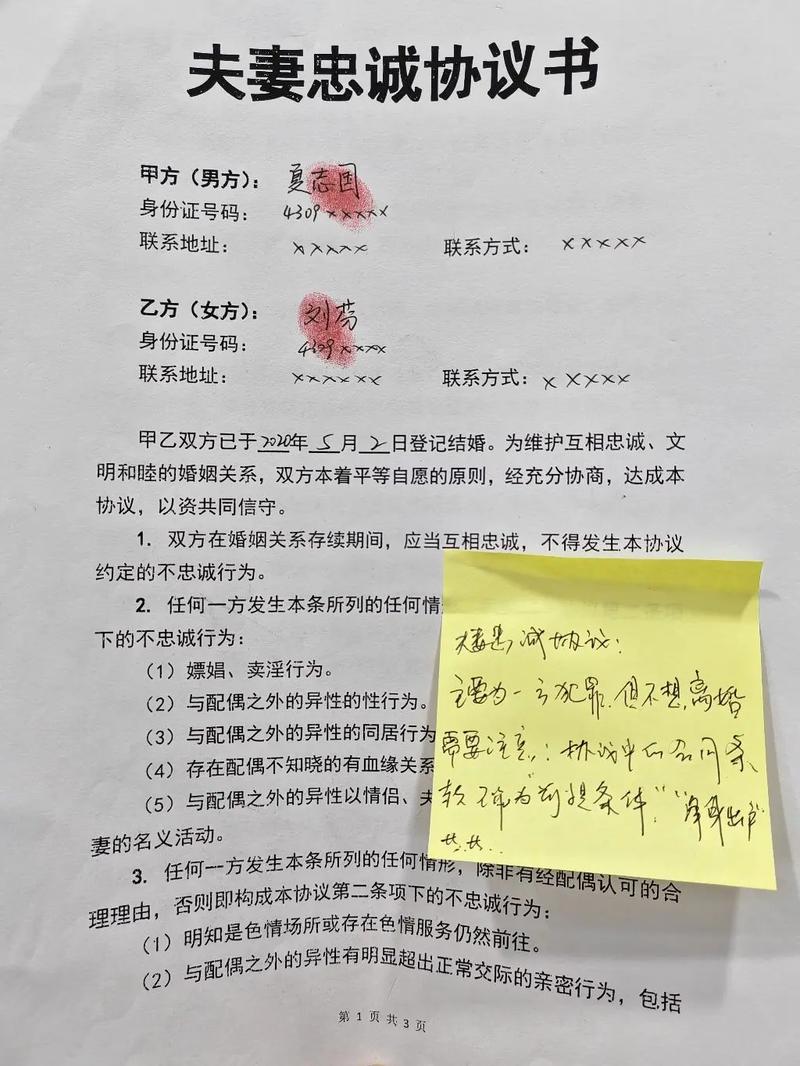 夫妻忠诚协议书
甲方（男方）： 夏志国
身份证号码： 4309×××××
联系地址： ××××× 联系方式： ×××××
乙方（女方）： 刘芬
身份证号码： 4309××××
联系地址： ×××××× 联系方式： ×××××
甲乙双方已于2020年5月2日登记结婚。为维护互相忠诚、文
明和睦的婚姻关系，双方本着平等自愿的原则，经充分协商，达成本
协议，以资共同信守。
1. 双方在婚姻关系存续期间，应当互相忠诚，不得发生本协议
约定的不忠诚行为。
2. 任何一方发生本条所列的任何情
下的不忠诚行为：
（1）嫖娼、卖淫行为。
（2）与配偶之外的异性的性行为。
（3）与配偶之外的异性的同居行为
（4）存在配偶不知晓的有血缘关系
（5）与配偶之外的异性以情侣、夫
妻的名义活动。
3. 任何一方发生本条所列的任何情形，除非有经配偶认可的合
理理由，否则即构成本协议第二条项下的不忠诚行为：
（1）明知是色情场所或存在色情服务仍然前往。
（2）与配偶之外的异性有明显超出正常交际的亲密行为，包括
第 1 页 共 3 页
夫妻忠诚协议：
主要为一方犯罪，但不想离婚
需要注意：协议中的合同条
款不能为"前提条件"，"净身出户